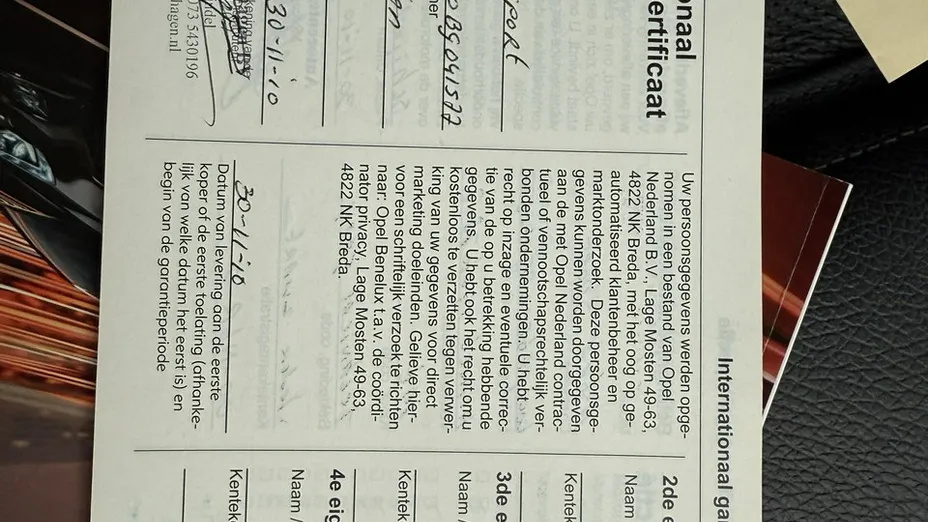 onaal
ertificaat
port
0B5041577
ner
en
30-11-10
del
073 5430196
hagen.nl
Internationaal ga
Uw persoonsgegevens werden opge-
nomen in een bestand van Opel
Nederland B.V., Lage Mosten 49-63,
4822 NK Breda, met het oog op ge-
automatiseerd klantenbeheer en
marktonderzoek. Deze persoonsge-
gevens kunnen worden doorgegeven
aan de met Opel Nederland contrac-
tueel of vennootschapsrechtelijk ver-
bonden ondernemingen. U hebt
recht op inzage en eventuele correc-
tie van de op u betrekking hebbende
gegevens. U hebt ook het recht om u
kosteloos te verzetten tegen verwer-
king van uw gegevens voor direct
marketing doeleinden. Gelieve hier-
voor een schriftelijk verzoek te richten
naar: Opel Benelux t.a.v. de coördi-
nator privacy, Lage Mosten 49-63,
4822 NK Breda.
30-11-10
Datum van levering aan de eerste
koper of de eerste toelating (afhanke-
lijk van welke datum het eerst is) en
begin van de garantieperiode
2de e
Naam
Kentek
3de e
Naam /
Kentek
4e eig
Naam /
Kentek